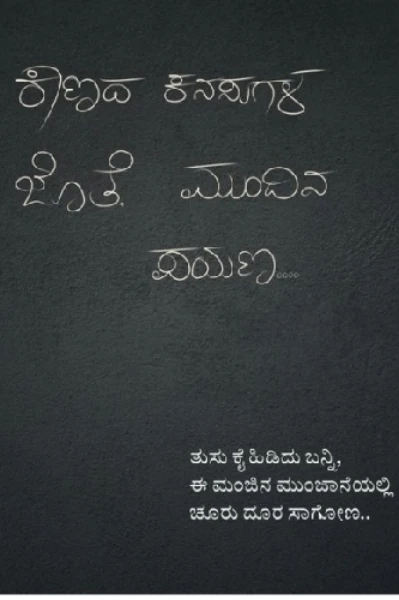 ಕಾಣದ ಕನಸುಗಳ
ಜೊತೆ ಮುಂದಿನ
ಪಯಣ....
ತುಸು ಕೈ ಹಿಡಿದು ಬನ್ನಿ,
ಈ ಮಂಜಿನ ಮುಂಜಾನೆಯಲ್ಲಿ
ಚೂರು ದೂರ ಸಾಗೋಣ..